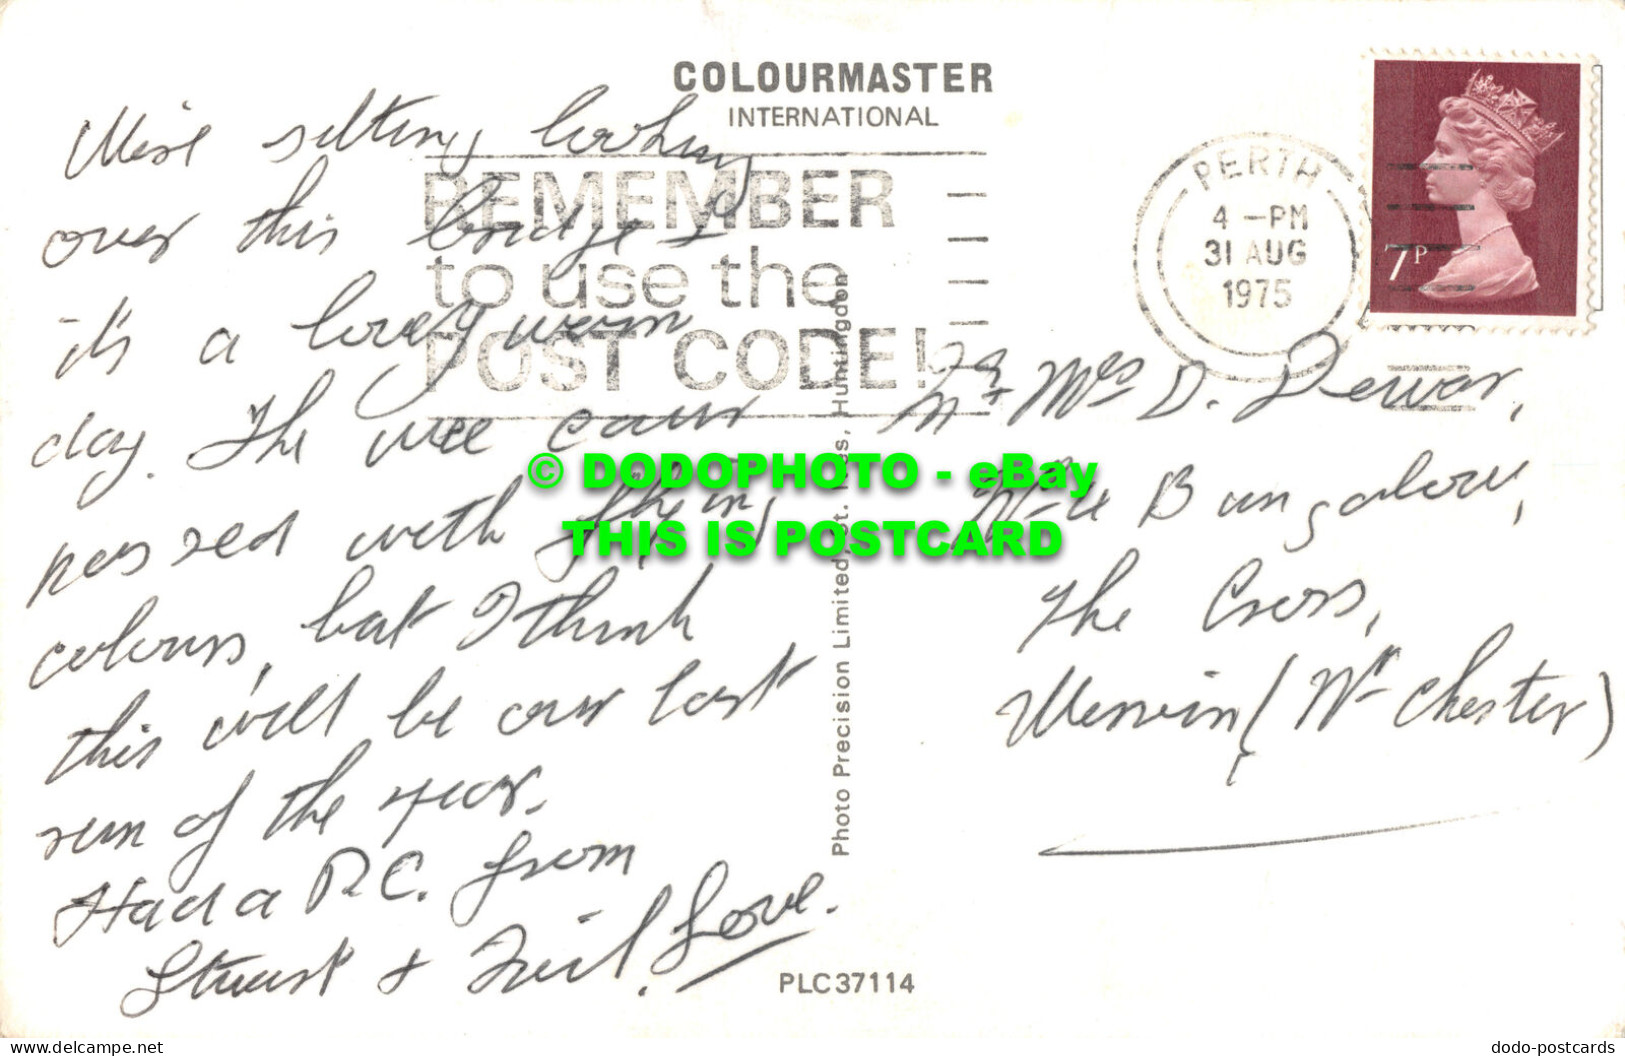 COLOURMASTER
INTERNATIONAL
REMEMBER
to use the
POST CODE!
PERTH
4 -PM
31 AUG
1975
7P
sitting looking
over this bridge &
it's a lovely warm
day. The wee car
passed with flying
colours, but I think
this will be our last
run of the year.
Had a P.C. from
Stuart & Neil. Love.
Mr & Mrs D. Dewar,
Bungalow,
The Cross,
(Nr Chester)
Photo Precision Limited, St. Ives, Huntingdon
PLC37114
© DODOPHOTO - eBay
THIS IS POSTCARD
www.delcampe.net
dodo-postcards